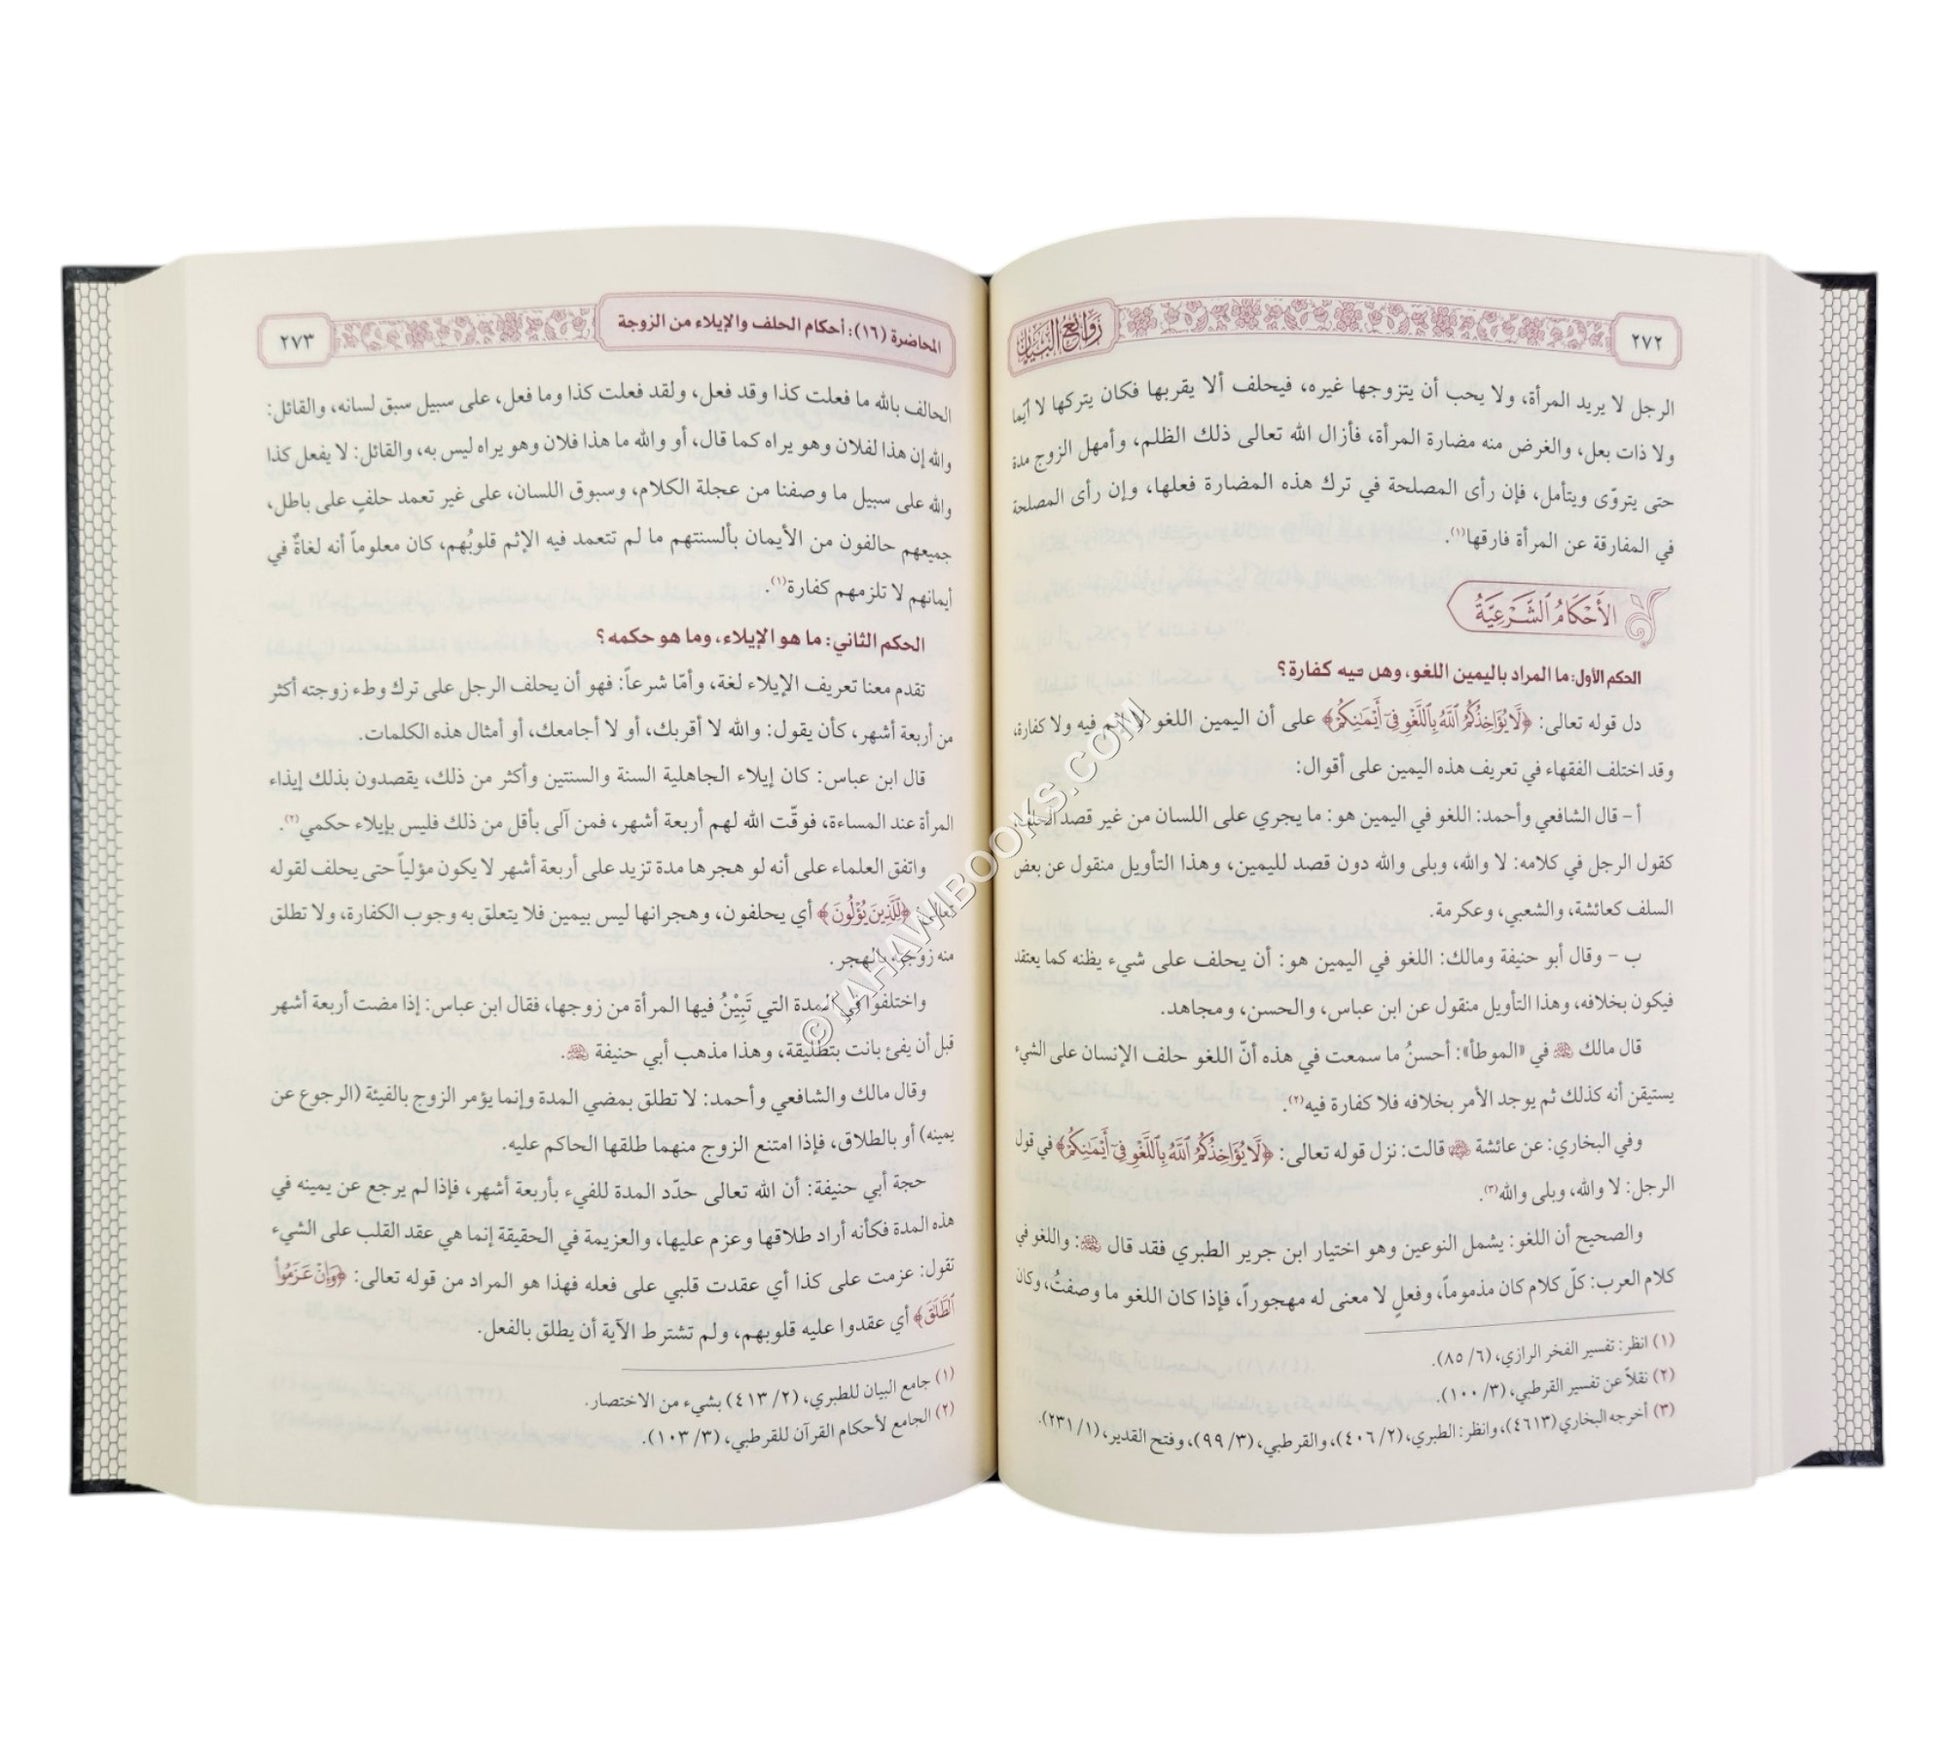 ٢٧٢
روائع البيان
الرجل لا يريد المرأة، ولا يحب أن يتزوجها غيره، فيحلف ألا يقربها فكان يتركها لا أيّما
ولا ذات بعل، والغرض منه مضارة المرأة، فأزال الله تعالى ذلك الظلم، وأمهل الزوج مدة
حتى يتروّى ويتأمل، فإن رأى المصلحة في ترك هذه المضارة فعلها، وإن رأى المصلحة
في المفارقة عن المرأة فارقها(١).
الأَحْكَامُ الشَّرْعِيَّةُ
الحكم الأول: ما المراد باليمين اللغو، وهل فيه كفارة؟
دل قوله تعالى: ﴿لَّا يُؤَاخِذُكُمُ ٱللَّهُ بِٱللَّغْوِ فِىٓ أَيْمَٰنِكُمْ﴾ على أن اليمين اللغو لا إثم فيه ولا كفارة،
وقد اختلف الفقهاء في تعريف هذه اليمين على أقوال:
أ – قال الشافعي وأحمد: اللغو في اليمين هو: ما يجري على اللسان من غير قصد الحلف،
كقول الرجل في كلامه: لا والله، وبلى والله دون قصد لليمين، وهذا التأويل منقول عن بعض
السلف كعائشة، والشعبي، وعكرمة.
ب – وقال أبو حنيفة ومالك: اللغو في اليمين هو: أن يحلف على شيء يظنه كما يعتقد
فيكون بخلافه، وهذا التأويل منقول عن ابن عباس، والحسن، ومجاهد.
قال مالك في «الموطأ»: أحسنُ ما سمعت في هذه أنّ اللغو حلف الإنسان على الشيء
يستيقن أنه كذلك ثم يوجد الأمر بخلافه فلا كفارة فيه(٢).
وفي البخاري: عن عائشة قالت: نزل قوله تعالى: ﴿لَّا يُؤَاخِذُكُمُ ٱللَّهُ بِٱللَّغْوِ فِىٓ أَيْمَٰنِكُمْ﴾ في قول
الرجل: لا والله، وبلى والله(٣).
والصحيح أن اللغو: يشمل النوعين وهو اختيار ابن جرير الطبري فقد قال: واللغو في
كلام العرب: كلّ كلام كان مذموماً، وفعلٍ لا معنى له مهجوراً، فإذا كان اللغو ما وصفتُ، وكان
(١) انظر: تفسير الفخر الرازي، (٦/ ٨٥).
(٢) نقلاً عن تفسير القرطبي، (٣/ ١٠٠).
(٣) أخرجه البخاري (٤٦١٣)، وانظر: الطبري، (٢/ ٤٠٦)، والقرطبي، (٣/ ٩٩)، وفتح القدير، (١/ ٢٣١).
المحاضرة (١٦): أحكام الحلف والإيلاء من الزوجة
٢٧٣
الحالف بالله ما فعلت كذا وقد فعل، ولقد فعلت كذا وما فعل، على سبيل سبق لسانه، والقائل:
والله إن هذا لفلان وهو يراه كما قال، أو والله ما هذا فلان وهو يراه ليس به، والقائل: لا يفعل كذا
والله على سبيل ما وصفنا من عجلة الكلام، وسبوق اللسان، على غير تعمد حلفٍ على باطل،
جميعهم حالفون من الأيمان بألسنتهم ما لم تتعمد فيه الإثم قلوبُهم، كان معلوماً أنه لغاةٌ في
أيمانهم لا تلزمهم كفارة(١).
الحكم الثاني: ما هو الإيلاء، وما هو حكمه؟
تقدم معنا تعريف الإيلاء لغة، وأمّا شرعاً: فهو أن يحلف الرجل على ترك وطء زوجته أكثر
من أربعة أشهر، كأن يقول: والله لا أقربك، أو لا أجامعك، أو أمثال هذه الكلمات.
قال ابن عباس: كان إيلاء الجاهلية السنة والسنتين وأكثر من ذلك، يقصدون بذلك إيذاء
المرأة عند المساءة، فوقّت الله لهم أربعة أشهر، فمن آلى بأقل من ذلك فليس بإيلاء حكمي(٢).
واتفق العلماء على أنه لو هجرها مدة تزيد على أربعة أشهر لا يكون مؤلياً حتى يحلف لقوله
تعالى: ﴿لِّلَّذِينَ يُؤْلُونَ﴾ أي يحلفون، وهجرانها ليس بيمين فلا يتعلق به وجوب الكفارة، ولا تطلق
منه زوجته بالهجر.
واختلفوا في المدة التي تَبِيْنُ فيها المرأة من زوجها، فقال ابن عباس: إذا مضت أربعة أشهر
قبل أن يفئ بانت بتطليقة، وهذا مذهب أبي حنيفة.
وقال مالك والشافعي وأحمد: لا تطلق بمضي المدة وإنما يؤمر الزوج بالفيئة (الرجوع عن
يمينه) أو بالطلاق، فإذا امتنع الزوج منهما طلقها الحاكم عليه.
حجة أبي حنيفة: أن الله تعالى حدّد المدة للفيء بأربعة أشهر، فإذا لم يرجع عن يمينه في
هذه المدة فكأنه أراد طلاقها وعزم عليها، والعزيمة في الحقيقة إنما هي عقد القلب على الشيء
تقول: عزمت على كذا أي عقدت قلبي على فعله فهذا هو المراد من قوله تعالى: ﴿وَإِنْ عَزَمُوا۟
ٱلطَّلَٰقَ﴾ أي عقدوا عليه قلوبهم، ولم تشترط الآية أن يطلق بالفعل.
(١) جامع البيان للطبري، (٢/ ٤١٣) بشيء من الاختصار.
(٢) الجامع لأحكام القرآن للقرطبي، (٣/ ١٠٣).
©TAHAWIBOOKS.COM